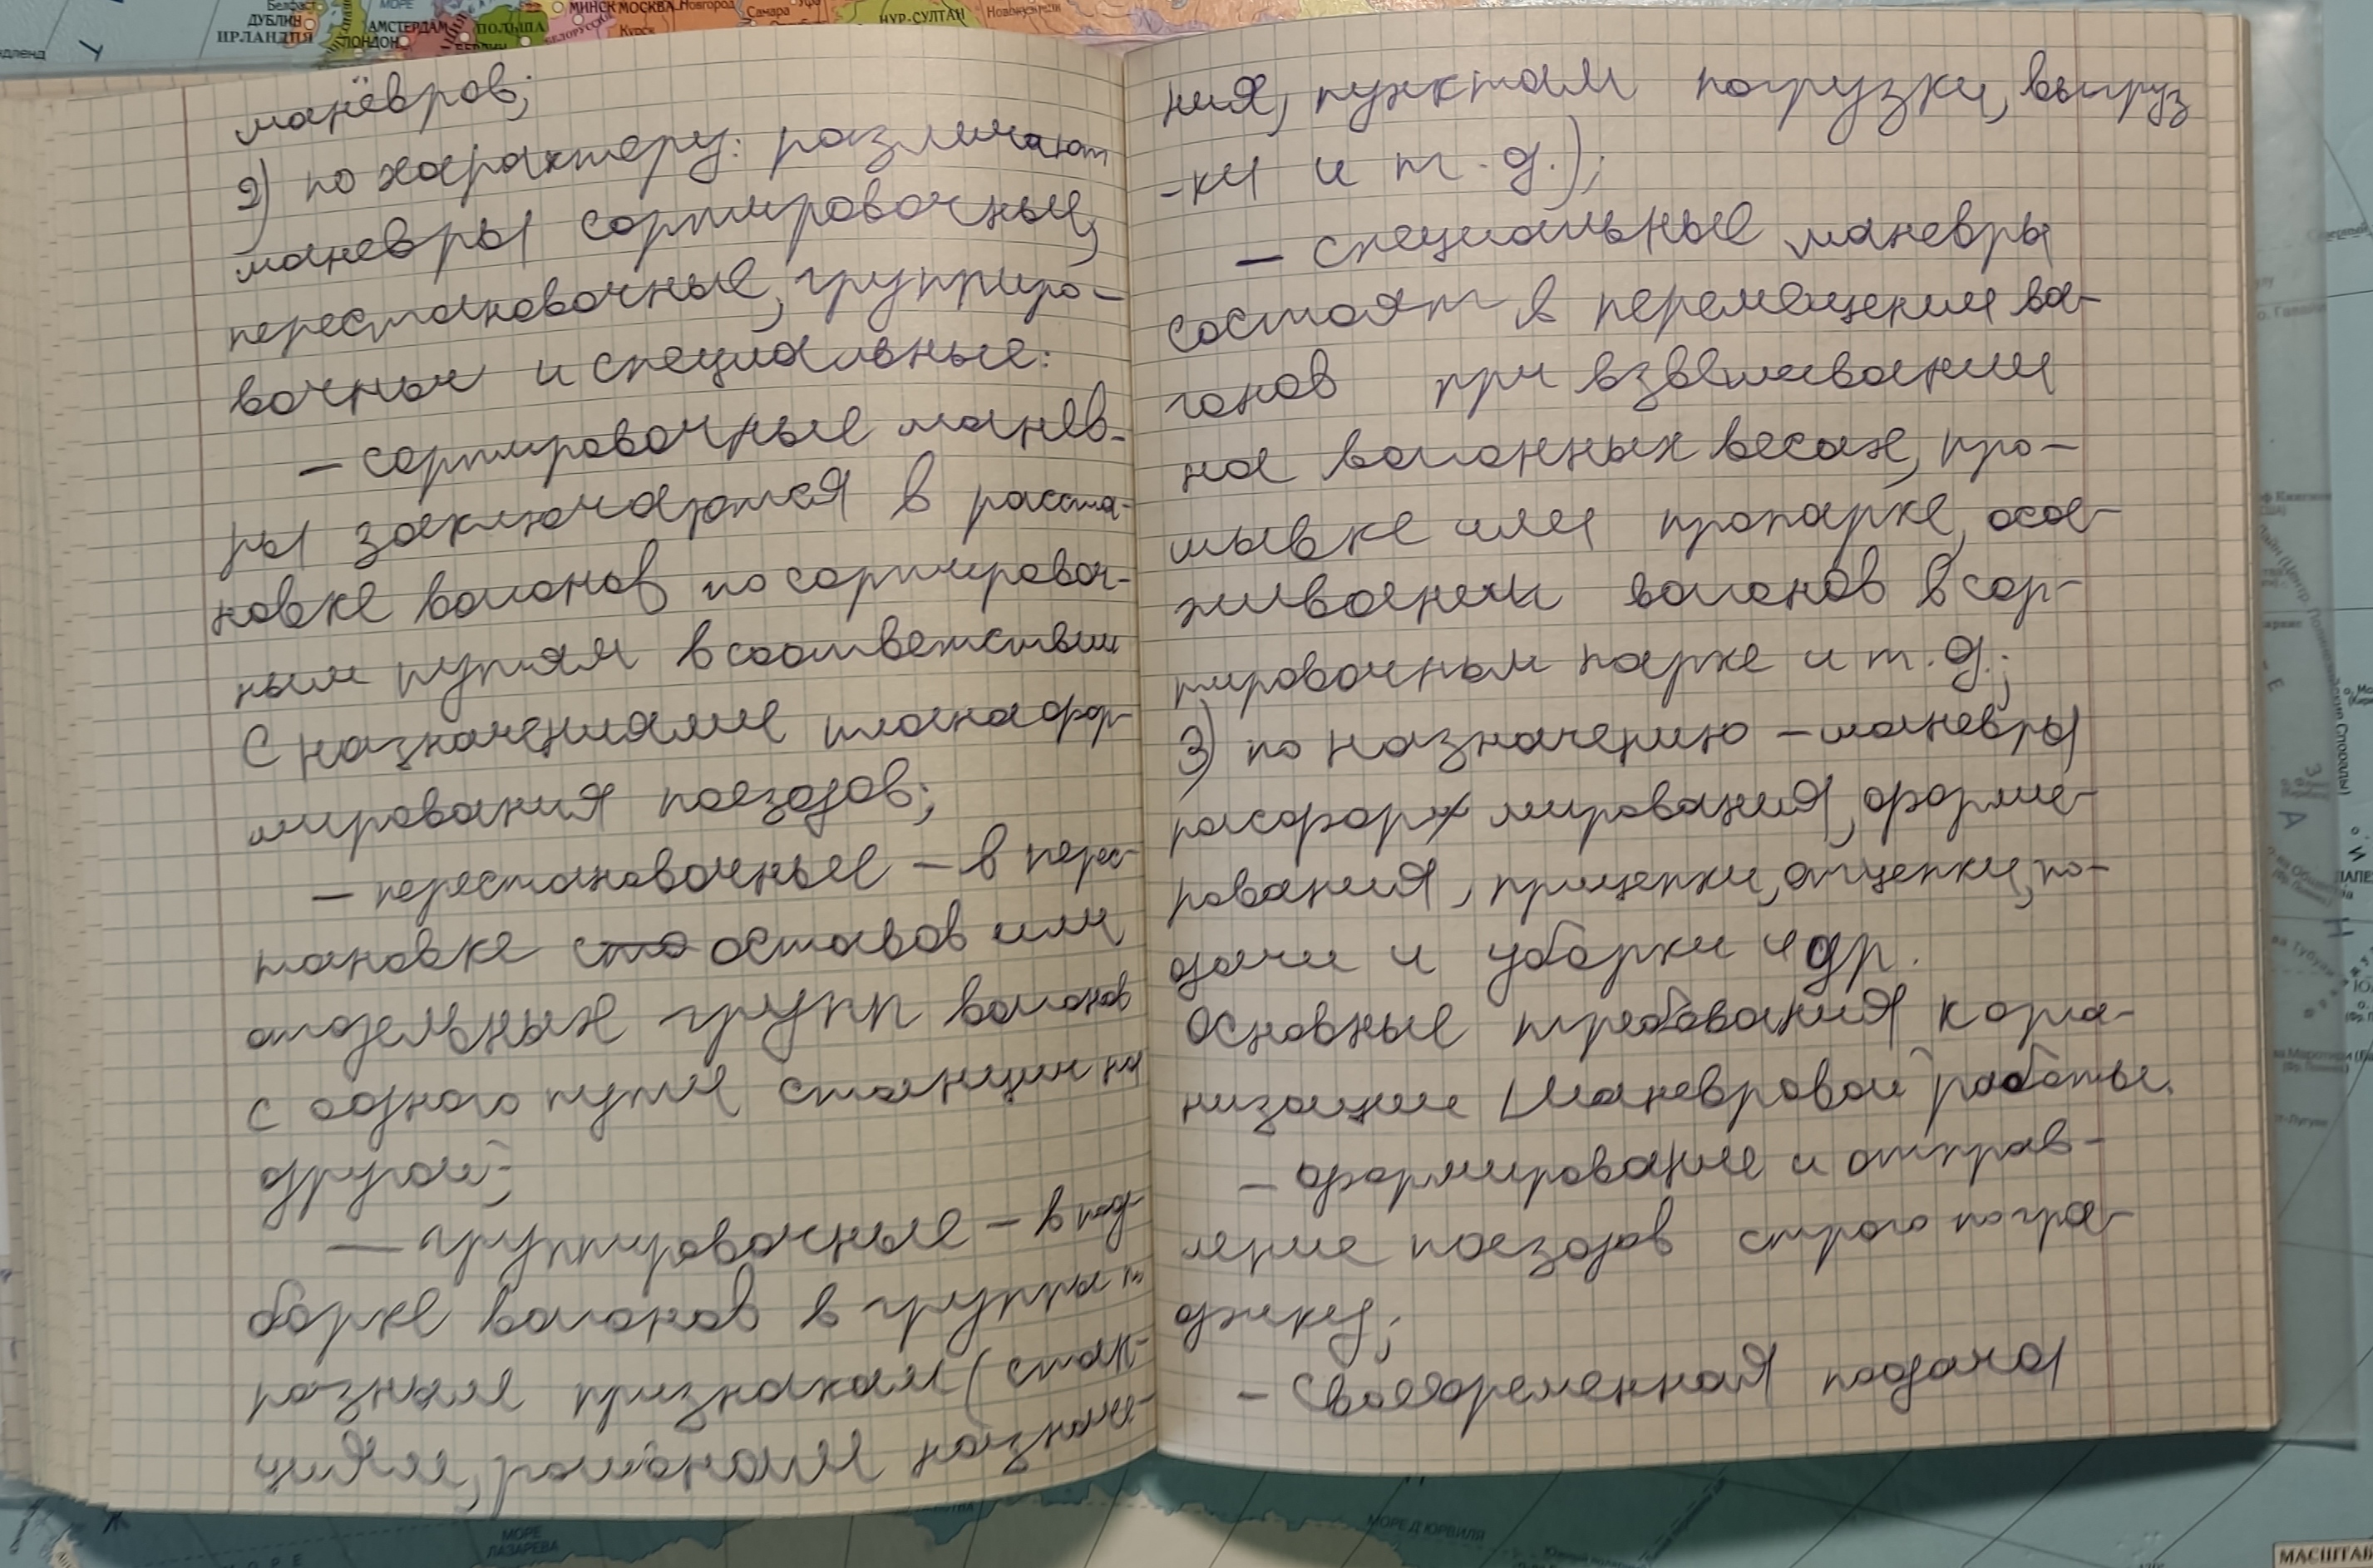 манёвров;
2) по характеру: различают
маневры сортировочные,
перестановочные, группиро-
вочные и специальные:
— сортировочные манёв-
ры заключаются в расста-
новке вагонов по сортировоч-
ным путям в соответствии
с назначениями плана фор-
мирования поездов;
— перестановочные — в перес-
тановке составов или
отдельных групп вагонов
с одного пути станции на
другой;
— группировочные — в под-
борке вагонов в группы по
разным признакам (стан-
циям, районам назначе-
ния, пунктам погрузки, выгруз
-ки и т.д.);
— специальные маневры
состоят в перемещении ва-
гонов при взвешивании
на вагонных весах, про-
мывке или пропарке, оса-
живании вагонов в сор-
тировочном парке и т.д.;
3) по назначению — маневры
расформирования, форми-
рования, прицепки, отцепки, по-
дачи и уборки и др.
Основные требования к орга-
низации маневровой работы.
— формирование и отправ-
ление поездов строго по гра-
фику;
— Своевременная подача
Белфаст
ДУБЛИН
ИРЛАНДИЯ
АМСТЕРДАМ
ЛОНДОН
ПОЛЬША
БЕРЛИН
МИНСК
МОСКВА
Курск
Самара
НУР-СУЛТАН
МОРЕ
ЛАЗАРЕВА
МОРЕ Д'ЮРВИЛЯ
МАСШТАБ